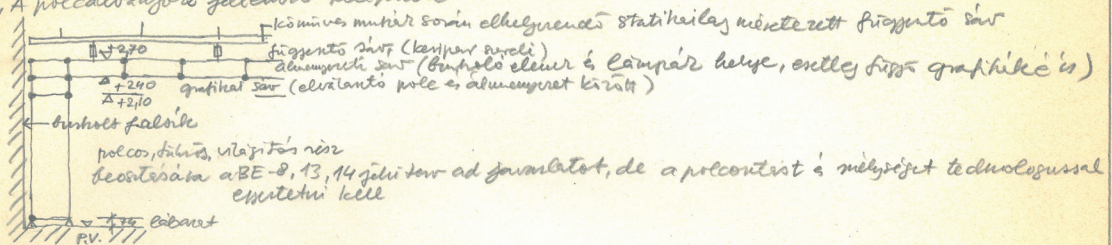 kőműves munkák során elhelyezendő statikailag méretezett függesztő sáv
+2,70
függesztő sáv (keripar szereli)
álmennyezeti sáv (burkoló elemek és lámpák helye, esetleg függő grafikáké is)
+240
grafikai sáv (elválasztó polc és álmennyezet között)
+2,10
burkolt falsík
polcos, fiókos, világítós rész
beosztására a BE-8, 13, 14 jelű terv ad javaslatot, de a polcosztást és mélységet technologussal
egyeztetni kell
lábazat
P.V.